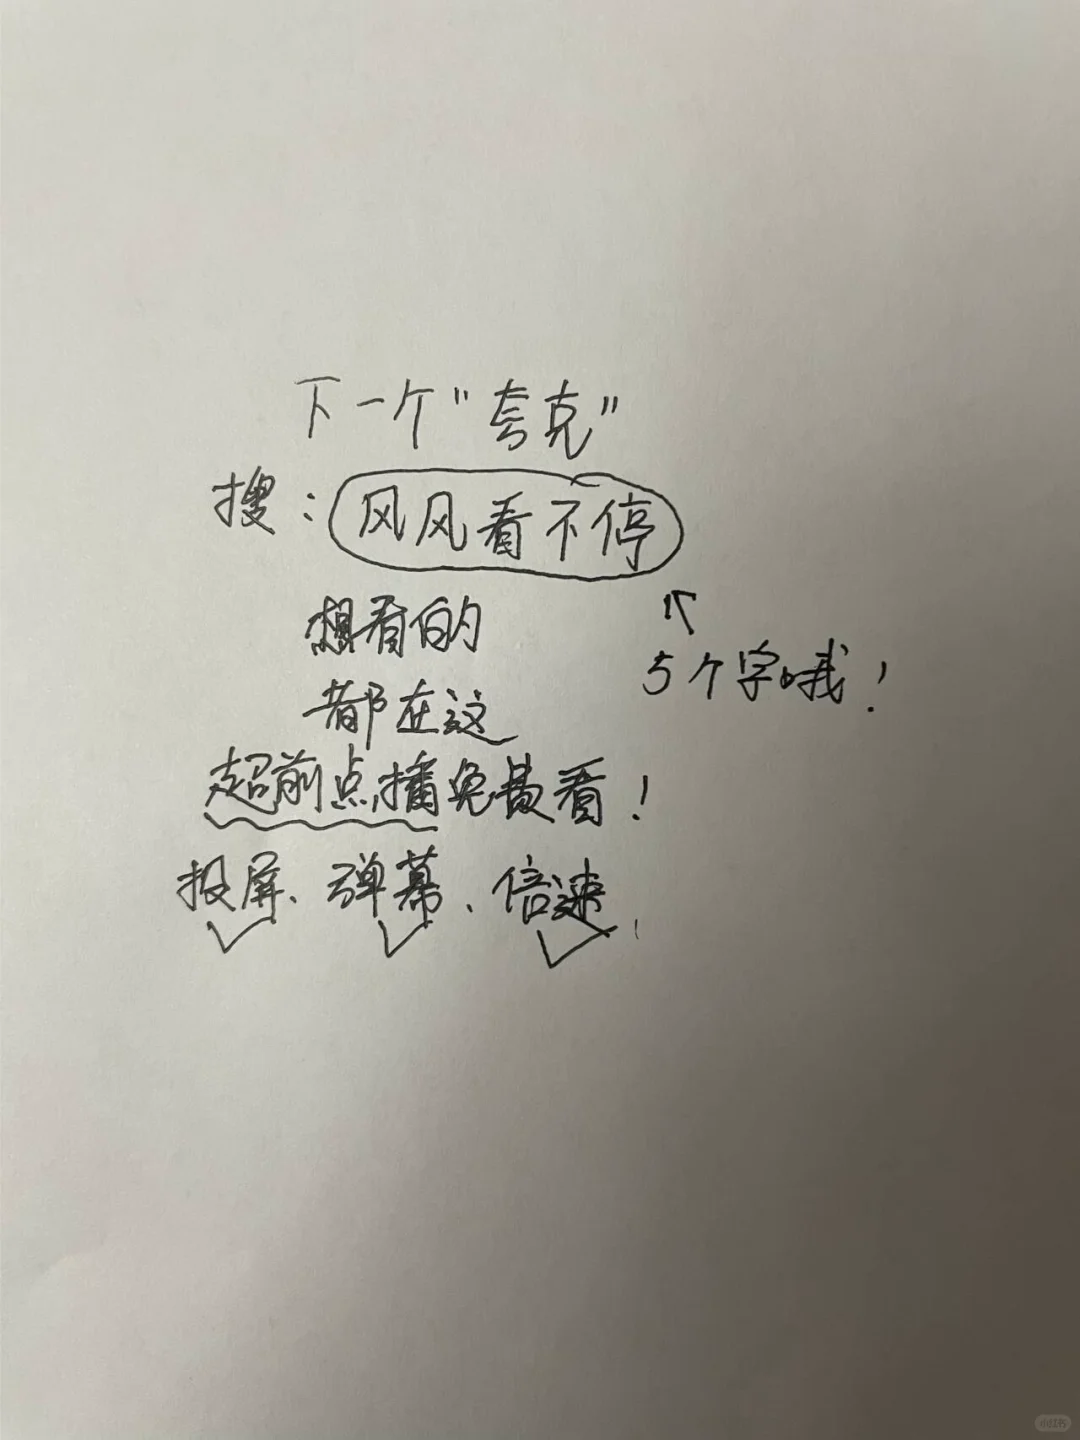 下一个“夸克”
搜：风风看不停
想看的
5个字哦！
都在这
超前点播免费看！
投屏、弹幕、倍速
小红书